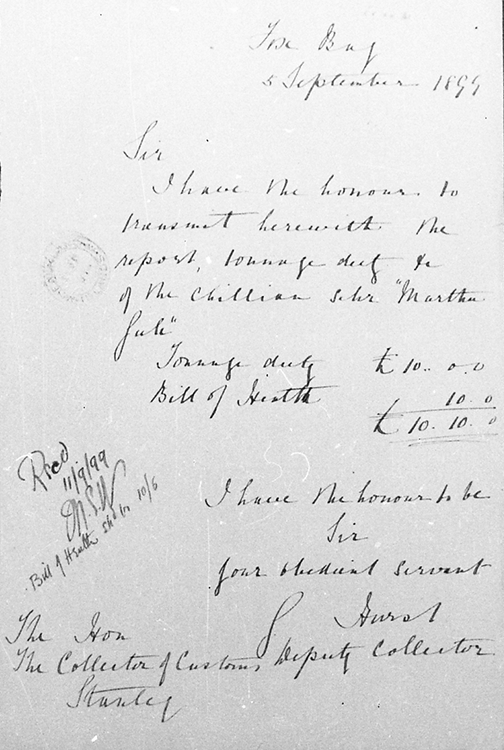 Fox Bay
5 September 1899
Sir
I have the honour to
transmit herewith the
report, tonnage duty &c
of the Chillian schr "Martha
Gale"
Tonnage duty £ 10.. 0. 0
Bill of Health 10. 0
£ 10. 10. 0
Recd
11/9/99
Bill of Health shd be 10/6
I have the honour to be
Sir
your obedient servant
G Hurst
Deputy Collector
The Hon
The Collector of Customs
Stanley